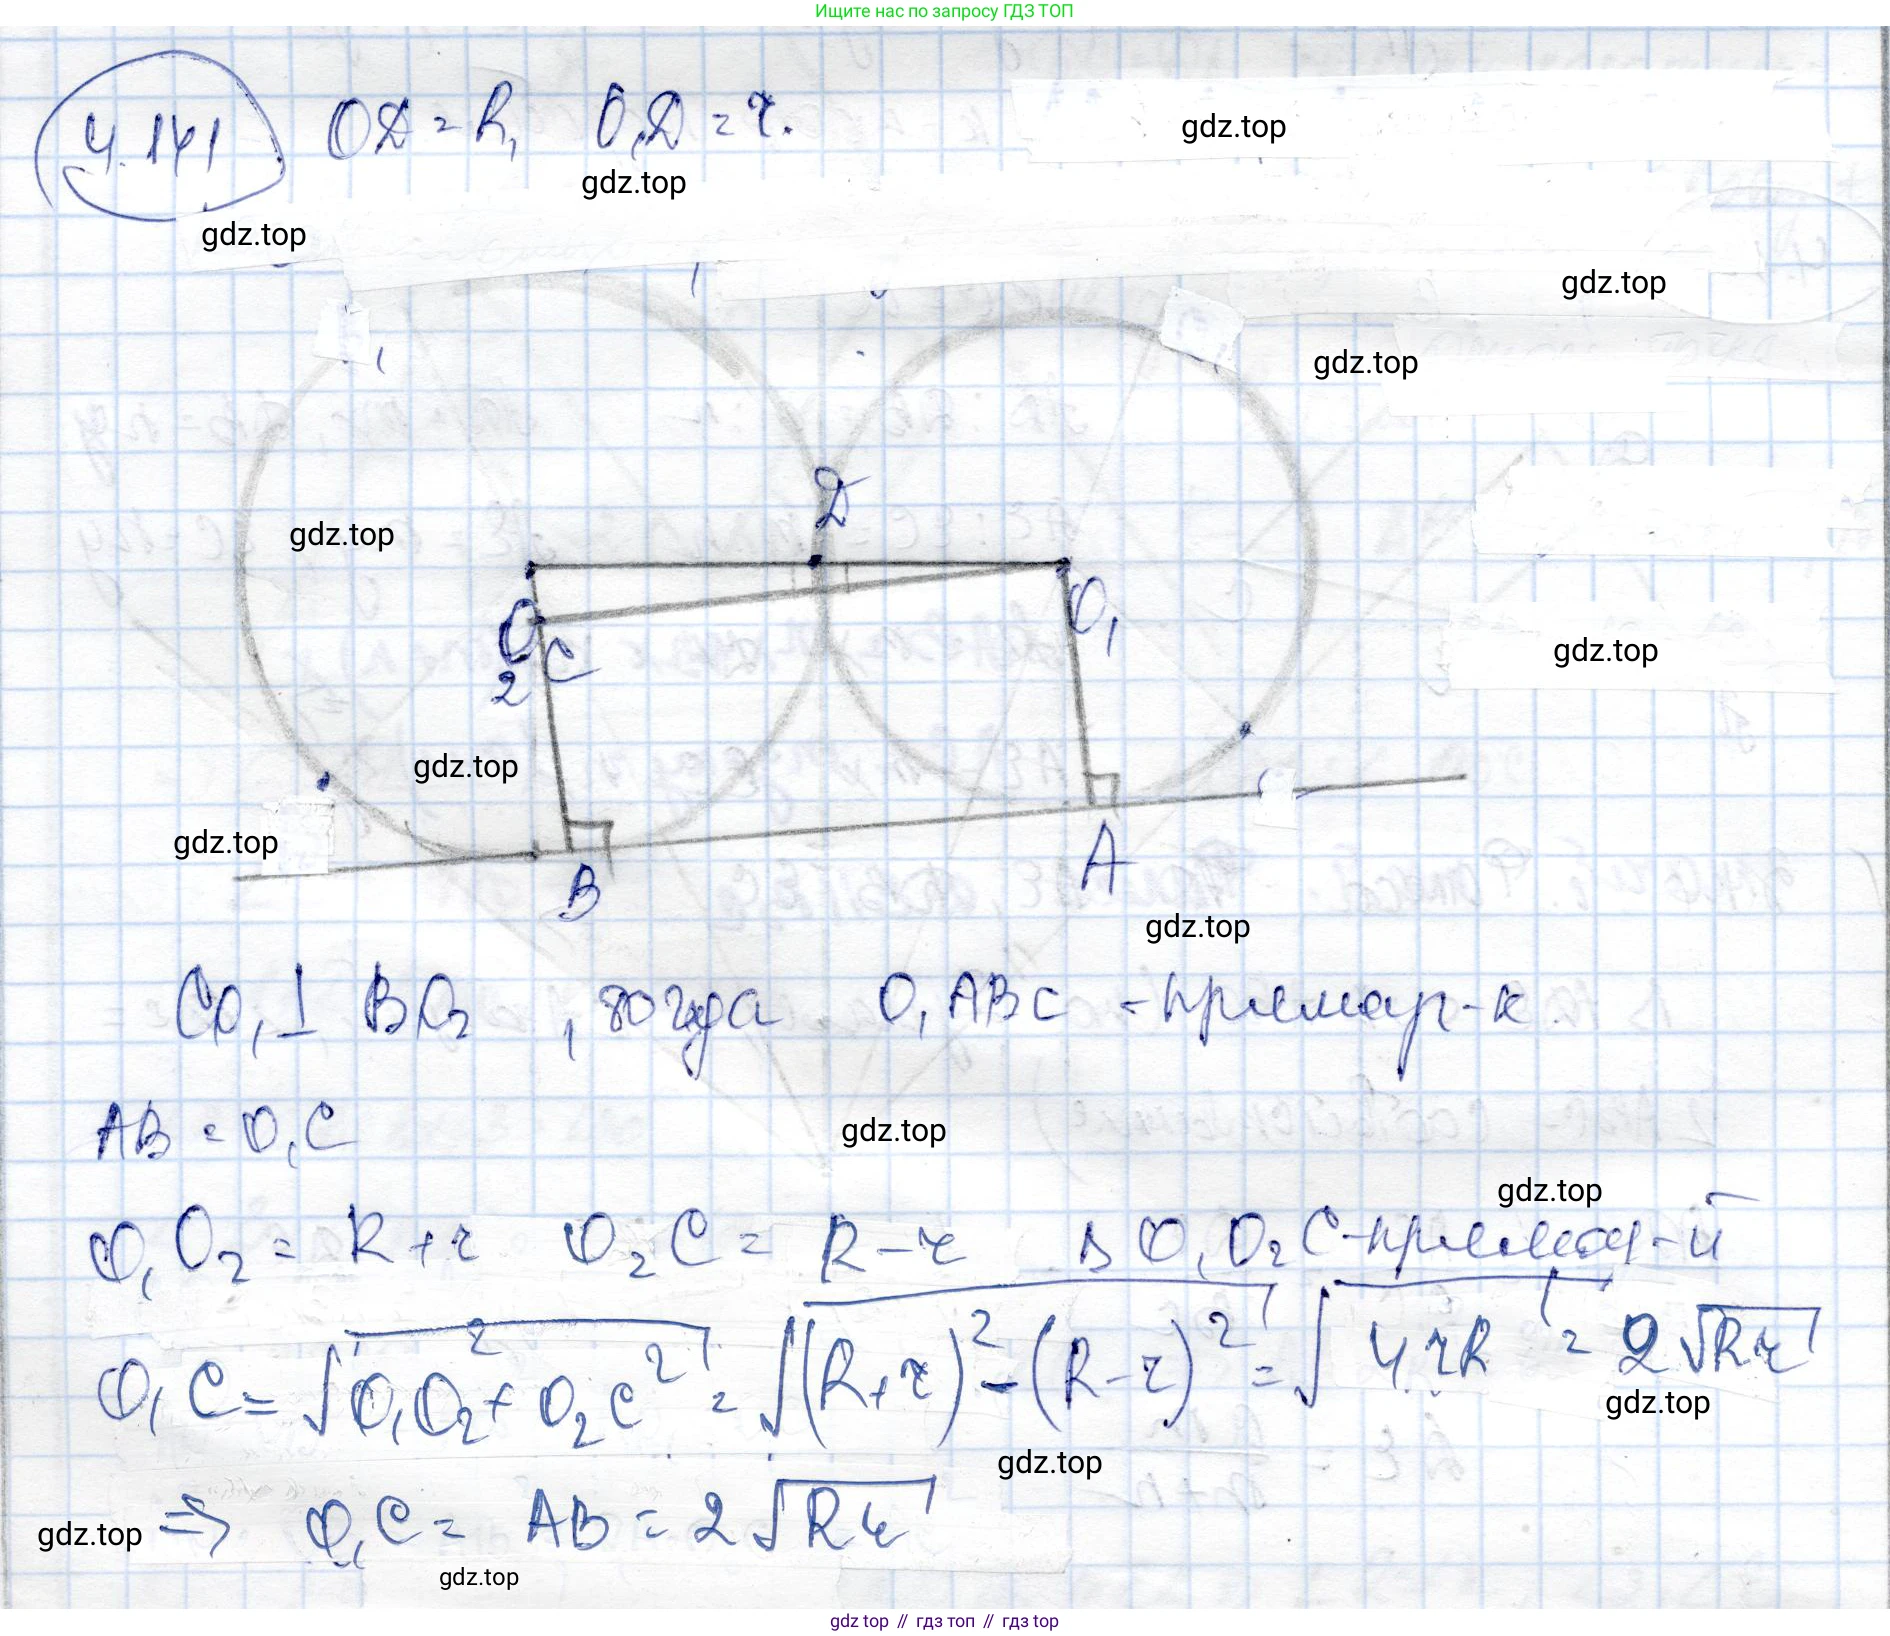 Ищите нас по запросу ГДЗ ТОП
4.141 OD = R, O₁D = r.
gdz.top
gdz.top
gdz.top
gdz.top
gdz.top
D
gdz.top
O₂
C
O₁
gdz.top
gdz.top
gdz.top
B
A
gdz.top
CO₁ ⊥ BO₂, тогда O₁ABC - прямоуг-к.
AB = O₁C
gdz.top
gdz.top
O₁O₂ = R + r O₂C = R - r Δ O₁O₂C - прямоуг-й
O₁C = √(O₁O₂² + O₂C²) = √((R + r)² - (R - r)²) = √(4rR) = 2√(Rr)
gdz.top
gdz.top
⇒ O₁C = AB = 2√(Rr)
gdz.top
gdz.top
gdz top // гдз топ // гдз top